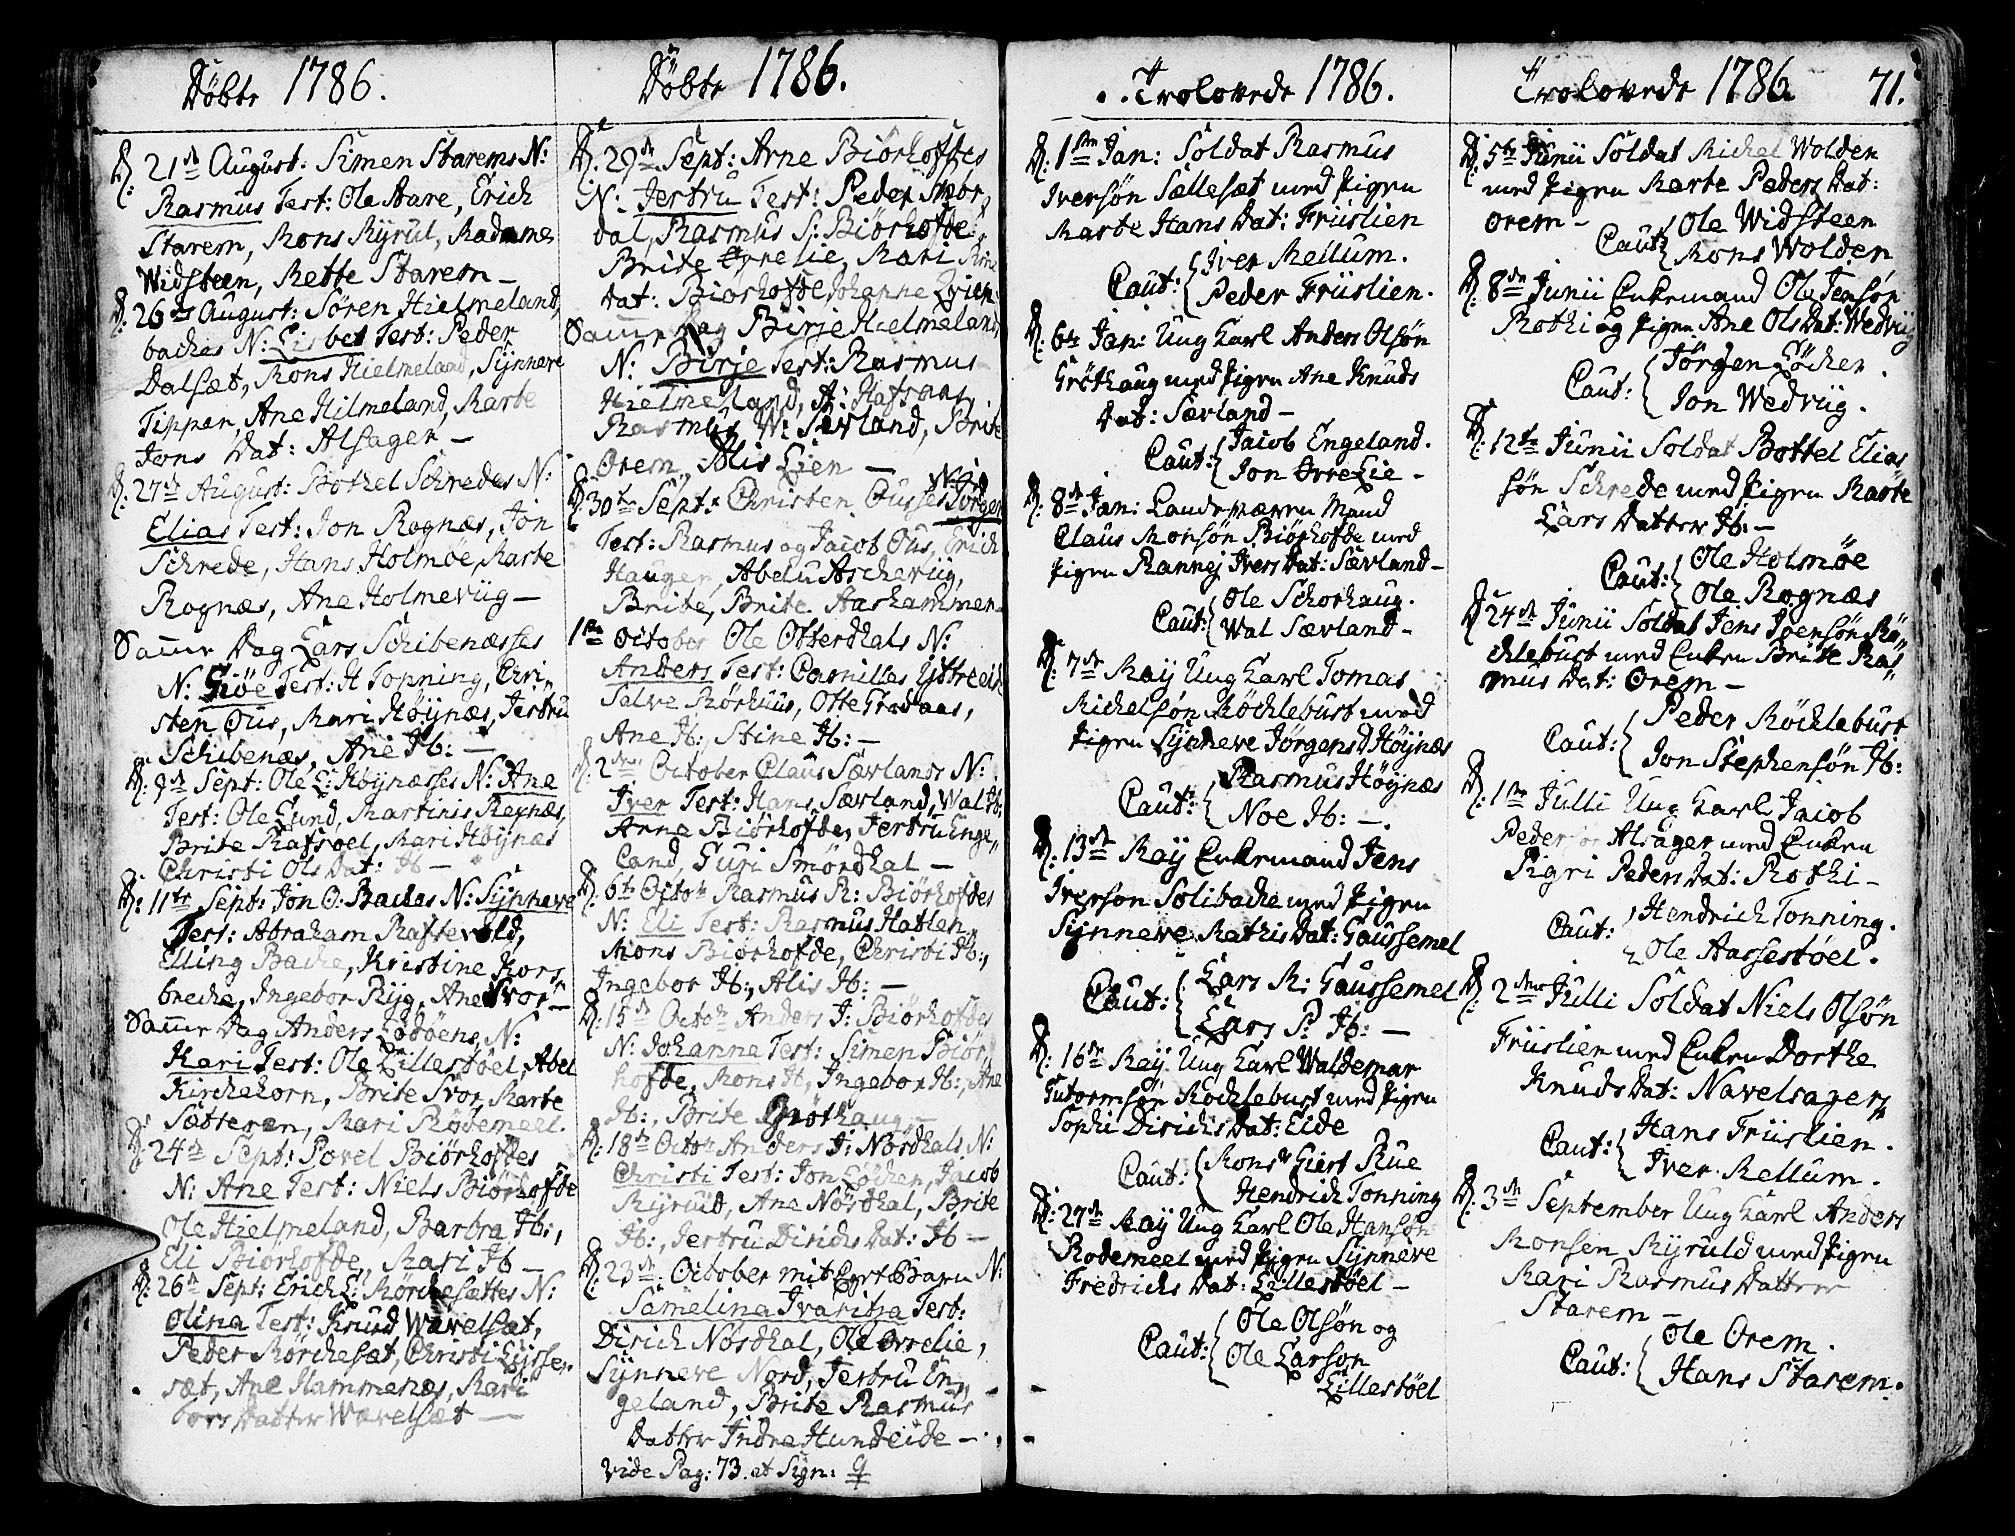 Døbte 1786.
D: 21de August: Simen Starems N:
Rasmus Test: Ole Aare, Erich
Starem, Mons Myrul, Madame
Widsteen, Mette Starem –
D: 26de August: Søren Hielmeland,
backes N: Lisbet Test: Peder
Dalsæt, Mons Hielmeland, Synneve
Tippen, Ane Hilmeland, Marte
Jens Dat: Alsager –
D: 27de August: Bothel Schredes N:
Elias Test: Jon Rognæs, Jon
Schrede, Hans Holmøe, Marte
Rognæs, Ane Holmeviig –
Samme Dag Lars Schibenæsses
N: Giøe Test: H Tonning, Chri„
sten Ous, Mari Høynæs, Jertru
Schibenæs, Ane Ib: –
D: 9de Sept: Ole L: Høynæsses N: Ane
Test: Ole Lund, Martinis Reynæs,
Brite Rafsoel, Mari Høynæs
Christi Ols Dat: Ib –
D: 11te Sept: Jon O: Backes N: Synneve
Test: Abraham Raftevold,
Elling Backe, Kristine Kors„
brecke, Ingebor Ryg, Ane Svor –
Samme Dag Anders Lødøens N:
Kari Test: Ole Lillestøel, Abel
Kirchehorn, Brite Svor, Marte
Sætteren, Mari Rødemeel.
D: 24de Sept: Povel Biørhofdes
N: Ane Test: Niels Biørhofde
Ole Hielmeland, Barbra Ib:,
Eli Biørhofde, Mari Ib –
D: 26de Sept: Erich L: Mørchesættes N:
Olina Test: Knud Wævelsæt,
Peder Mørchesæt, Christi Løsse„
sæt, Ane Hammenæs, Mari
Tors Datter Wævelsæt –
Døbte 1786.
D: 29de Sept: Arne Biørhofdes
N: Jertru Test: Peder Nør
dal, Rasmus S: Biørhofde,
Brite Orrelie, Mari
Dat: Biørhofde Johanne Lien
Samme Dag Birje Hielmeland,
N: Birje Test: Rasmus
Hielmeland, A: Hafsaas,
Rasmus W: Sævland, Brite
Orem, Alis Lien –
D: 30te Sept: Christen Ousses N: Jørgen
Test: Rasmus og Jacob Ous, Erich
Haugen, Abelu Ascheviig,
Brite, Brite Aashammer –
1ste October Ole Otterdhals N:
Anders Test: Cornilles Yttreeide
Salve Mørhuus, Otte Grodaas,
Ane Ib:, Stine Ib: –
D: 2den October Claus Sævlands N:
Iver Test: Hans Sævland, Wal Ib,
Anne Biørhofde, Jertru Enge„
land, Guri Smørdhal –
D: 6te Octobr Rasmus R: Biørhofdes
N: Eli Test: Rasmus Hatlen,
Mons Biørhofde, Christi Ib:,
Ingebor Ib:, Alis Ib: –
D: 15de Octobr Anders J: Biørhofdes
N: Johanna Test: Simen Biør„
hofde, Mons Ib, Ingebor Ib:, Ane
Ib:, Brite Grøthaug –
D: 18de Octobr Anders J: Nordhals N:
Christi Test: Jon Løchen, Jacob
Myruld, Ane Nordhal, Brite
Ib:, Jertru Dirichs Dat: Ib –
D: 23de October mit Eget Barn N:
Samelina Ivaritza Test:
Dirich Nordhal, Ole Orrelie,
Synneve Nord, Jertru En„
geland, Brite Rasmus
Datter Indre Hundeide –
vide Pag: 73. at Sign:
Trolovede 1786.
D: 1ste Jan: Soldat Rasmus
Iversøn Sællesæt med Pigen
Marte Hans Dat: Friislien
Caut: Iver Mellum.
Peder Friislien.
D: 6te Jan: Ung Karl Anders Olsøn
Grøthaug med Pigen Ane Knuds
Dat: Sævland –
Caut: Jacob Engeland.
Jon Orrelie –
D: 8de Jan: Landsværn Mand
Claus Monsøn Biørhofde med
Pigen Rannej Ivers Dat: Sævland –
Caut: Ole Schorhaug.
Wal Sævland –
D: 7de May Ung Karl Tomas
Michelsøn Möcklebust med
Pigen Synneve Jørgens D Høynæs
Caut: Rasmus Høynæs
Noe Ib: –.
D: 13de May Enkemand Jens
Iverson Solibacke med Pigen
Synneve Mathis Dat: Gaussemel
Caut: Lars M: Gaussemel
Lars P: Ib: –
D: 16de May Ung Karl Waldemar
Gutormsøn Mocklebust med Pigen
Sophi Dirichs Dat: Eide
Caut: Mons Giert Rue
Hendrich Tonning
D: 27de May Ung Karl Ole Hansøn
Rodemeel med Pigen Synneve
Fredrichs Dat: Lillestøel –
Caut: Ole Olsøn og
Ole Larson
Lillestøel
Trolovede 1786. 71.
D: 5te Junii Soldat Michel Wolden
med Pigen Marte Peders Dat:
Orem –
Caut: Ole Widsteen
Mons Wolden
D: 8de Junii Enkemand Ole Jensøn
Rothi og Pigen Ane Ols Dat: Wedviig
Caut: Jørgen Løchen.
Jon Wedviig.
D: 12te Junii Soldat Bottel Elias„
søn Schrede med Pigen Marte
Lars Datter Ib: –
Caut: Ole Holmøe
Ole Rognæs
D: 24de Junii Soldat Jens Jensøn Mö„
cklebust med Enken Brite Ras„
mus Dat: Orem –
Caut: Peder Möcklebust
Jon Stephensøn Ib:
D: 1ste Julli Ung Karl Jacob
Peders: Alsager med Enken
Pigri Peders Dat: Rothi –
Caut: Hendrich Tonning.
Ole Aassestøel.
D: 2den Julli Soldat Niels Olsøn
Friislien med Enken Dorthe
Knuds Dat: Navelsagers
Caut: Hans Friislien.
Iver Mellum.
D: 3de September Ung Karl Anders
Monsen Myruld med Pigen
Mari Rasmus Datter
Starem –
Caut: Ole Orem.
Hans Starem.